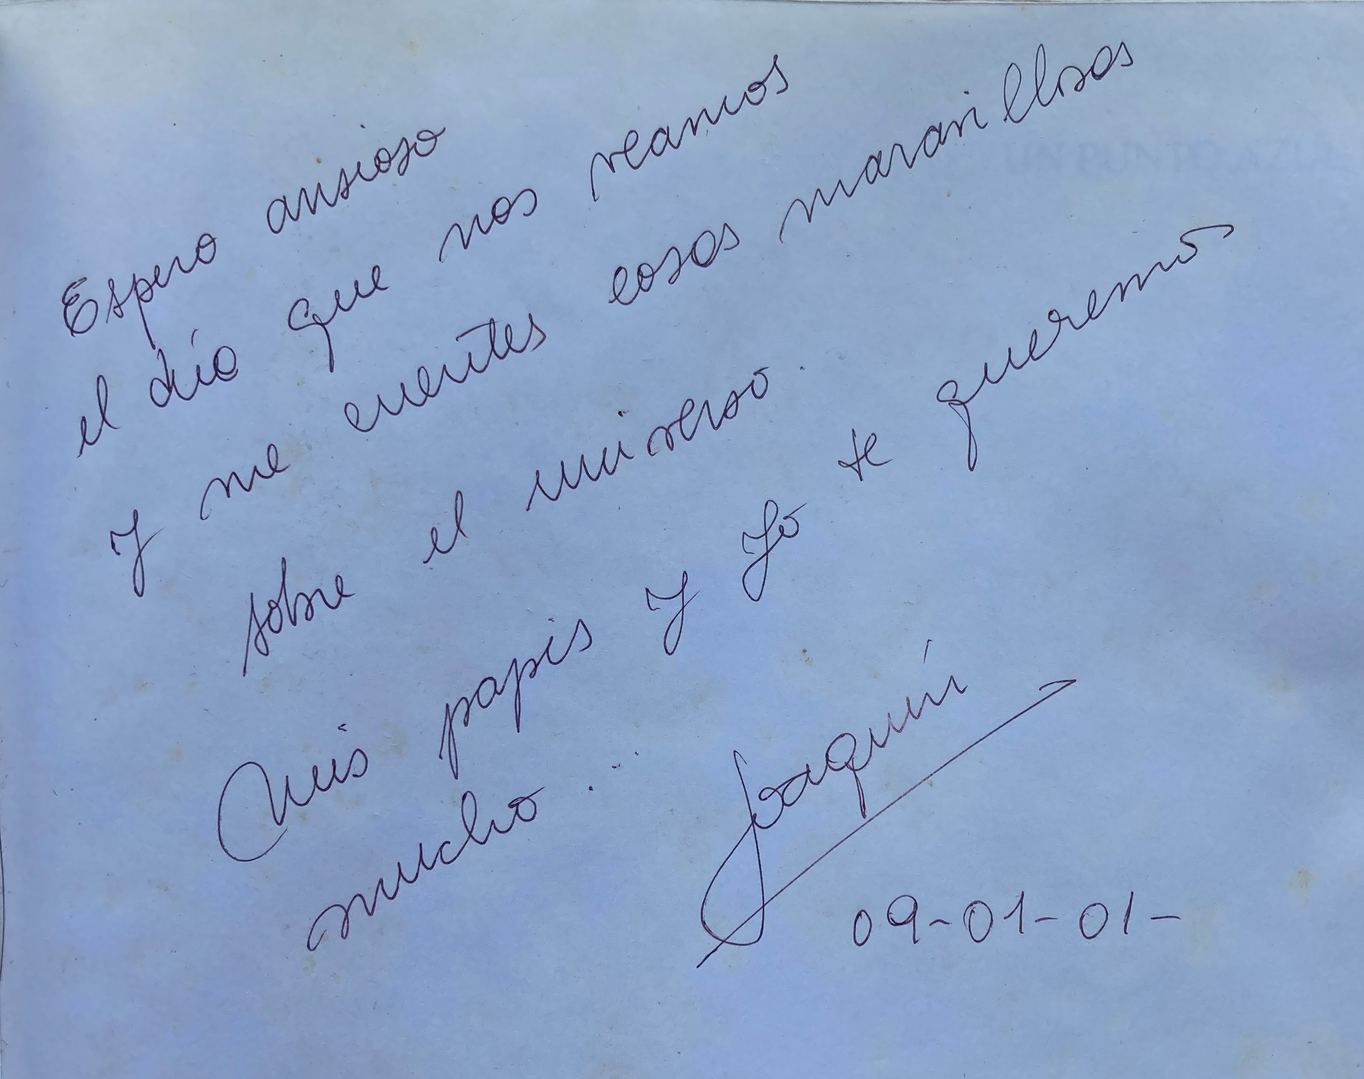 Espero ansioso
el día que nos veamos
y me cuentes cosas maravillosas
sobre el universo.
Mis papis y yo te queremos
mucho..
Joaquín
09-01-01-
UN PUNTO AZUL